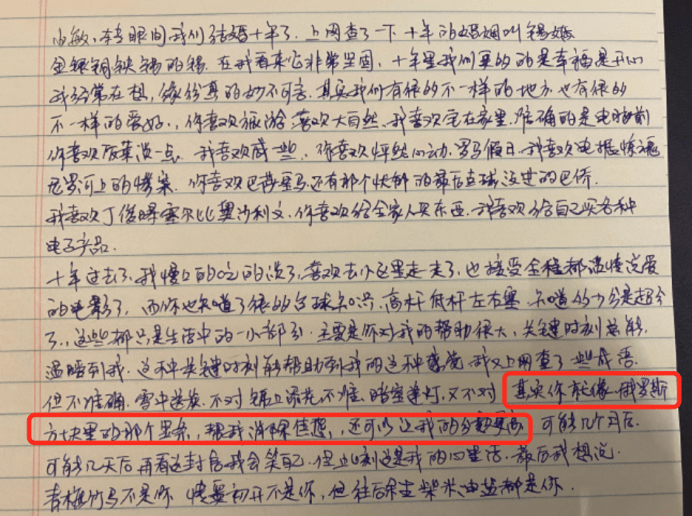 小敏，转眼间我们结婚十年了，上网查了一下十年的婚姻叫锡婚
金银铜铁锡的锡，在我看来它非常坚固，十年里我们更多的是幸福是开心
我经常在想，缘份真的妙不可言，其实我们有很多不一样的地方也有很多
不一样的爱好，你喜欢旅游喜欢大自然，我喜欢宅在家里，准确的是电脑前
你喜欢饭菜淡一点，我喜欢咸一些，你喜欢怦然心动，罗马假日，我喜欢电锯惊魂
尼罗河上的惨案，你喜欢巴蒂皇马还有那个快
我喜欢丁俊晖塞尔比奥沙利文，你喜欢给全家人买东西，我喜欢给自己买各种
电子产品。
十年过去了，我慢慢的吃的淡了，喜欢去小区里走一走了，也接受全程都温情浪漫
的电影了，而你也知道了很多台球知识，高杆低杆左右塞，知道的147分是超分
了，这些都只是生活中的一小部分，主要是你对我的帮助很大，关键时刻总能
温暖到我，这种关键时刻能帮助到我的这种感觉，我又上网查了些成语
但不准确，雪中送炭，不对锦上添花不准，暗室逢灯，又不对 其实你就像俄罗斯
方块里的那个竖条，帮我消除焦虑，还可以让我的分数更高 可能几个月后
可能几天后再看这封信我会笑自己，但此刻这是我的心里话，最后我想说
青梅竹马不是你 情窦初开不是你，但往后余生柴米油盐都是你。